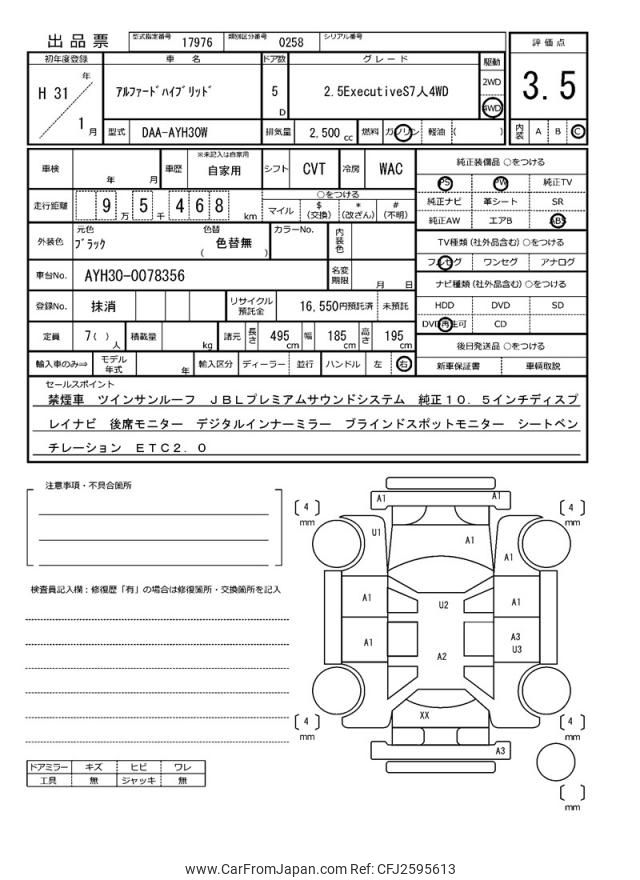 出品票 型式指定番号 17976 類別区分番号 0258 シリアル番号
初年度登録 車 名 ドア数 グレード 駆動 評価点
H 31 年 アルファードハイブリッド 5 D 2.5ExecutiveS7人4WD 2WD 4WD 3.5
1 月 型式 DAA-AYH30W 排気量 2,500 cc 燃料 ガソリン 軽油 ( ) 内装 A B C
車検 年 月 車歴 ※未記入は自家用 自家用 シフト CVT 冷房 WAC 純正装備品 ○をつける
PS PW 純正TV
走行距離 9 万 5 千 4 6 8 km ○をつける 純正ナビ 革シート SR
マイル $ (交換) * (改ざん) # (不明) 純正AW エアB ABS
外装色 元色 ブラック 色替 ( 色替無 ) カラーNo. 内装色 TV種類 (社外品含む) ○をつける
フルセグ ワンセグ アナログ
車台No. AYH30-0078356 名変期限 月 日 ナビ種類 (社外品含む) ○をつける
登録No. 抹消 リサイクル預託金 16,550円預託済 未預託 HDD DVD SD
DVD再生可 CD
定員 7 ( ) 人 積載量 kg 諸元 長さ 495 cm 幅 185 cm 高さ 195 cm 後日発送品 ○をつける
輸入車のみ⇒ モデル年式 年 輸入区分 ディーラー 並行 ハンドル 左 右 新車保証書 車輌取説
セールスポイント
禁煙車 ツインサンルーフ JBLプレミアムサウンドシステム 純正10.5インチディスプ
レイナビ 後席モニター デジタルインナーミラー ブラインドスポットモニター シートベン
チレーション ETC2.0
注意事項・不具合箇所
検査員記入欄：修復歴「有」の場合は修復箇所・交換箇所を記入
A1 A1
[4] mm [4] mm
U1 A1 A1
A1 U2 A1
A1 A2 A3 U3
XX
[4] mm [4] mm
A3
[ ] mm
ドアミラー キズ ヒビ ワレ
工具 無 ジャッキ 無
www.CarFromJapan.com Ref: CFJ2595613